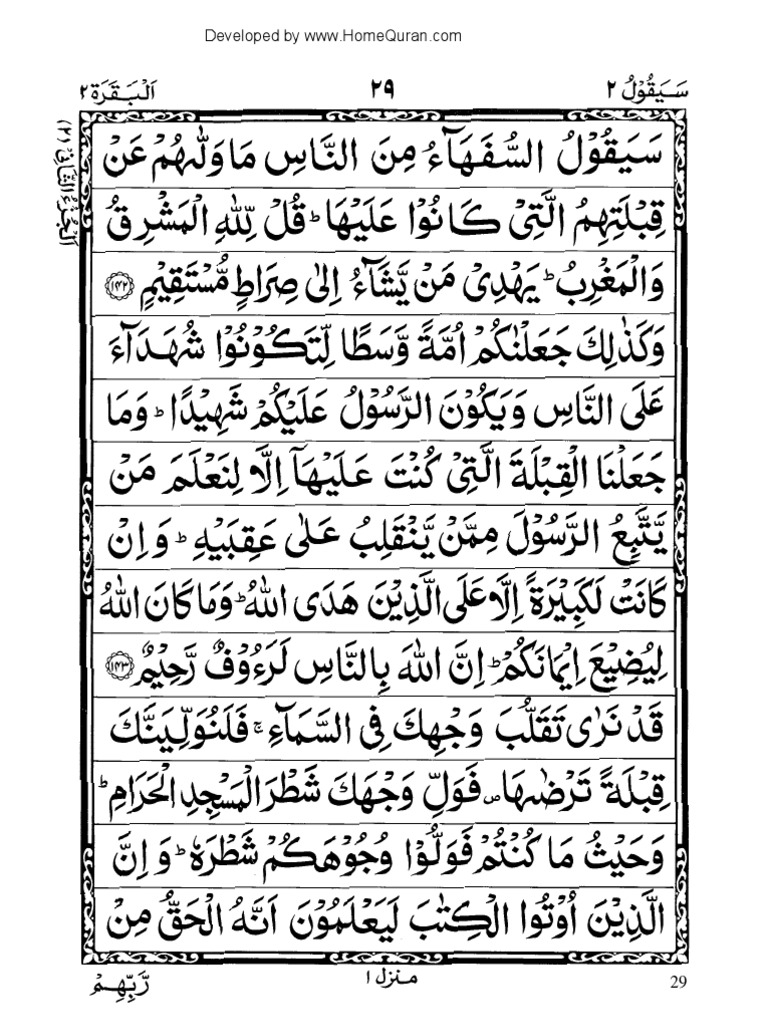 Developed by www.HomeQuran.com
سَيَقُوْلُ ٢ ٢٩ اَلْبَقَرَة ٢
اَلْجُزْءُ الثَّانِیْ (٢)
سَيَقُوْلُ السُّفَهَآءُ مِنَ النَّاسِ مَا وَلّٰىهُمْ عَنْ
قِبْلَتِهِمُ الَّتِىْ كَانُوْا عَلَيْهَا ؕ قُلْ لِّلّٰهِ الْمَشْرِقُ
وَالْمَغْرِبُ ؕ يَهْدِىْ مَنْ يَّشَآءُ اِلٰى صِرَاطٍ مُّسْتَقِيْمٍ ﴿۱۴۲﴾
وَكَذٰلِكَ جَعَلْنٰكُمْ اُمَّةً وَّسَطًا لِّتَكُوْنُوْا شُهَدَآءَ
عَلَى النَّاسِ وَيَكُوْنَ الرَّسُوْلُ عَلَيْكُمْ شَهِيْدًا ؕ وَمَا
جَعَلْنَا الْقِبْلَةَ الَّتِىْ كُنْتَ عَلَيْهَآ اِلَّا لِنَعْلَمَ مَنْ
يَّتَّبِعُ الرَّسُوْلَ مِمَّنْ يَّنْقَلِبُ عَلٰى عَقِبَيْهِ ؕ وَاِنْ
كَانَتْ لَكَبِيْرَةً اِلَّا عَلَى الَّذِيْنَ هَدَى اللّٰهُ ؕ وَمَا كَانَ اللّٰهُ
لِيُضِيْعَ اِيْمَانَكُمْ ؕ اِنَّ اللّٰهَ بِالنَّاسِ لَرَءُوْفٌ رَّحِيْمٌ ﴿۱۴۳﴾
قَدْ نَرٰى تَقَلُّبَ وَجْهِكَ فِى السَّمَآءِ ۚ فَلَنُوَلِّيَنَّكَ
قِبْلَةً تَرْضٰىهَا ۪ فَوَلِّ وَجْهَكَ شَطْرَ الْمَسْجِدِ الْحَرَامِ ؕ
وَحَيْثُ مَا كُنْتُمْ فَوَلُّوْا وُجُوْهَكُمْ شَطْرَهٗ ؕ وَاِنَّ
الَّذِيْنَ اُوْتُوا الْكِتٰبَ لَيَعْلَمُوْنَ اَنَّهُ الْحَقُّ مِنْ
29 منزل ١ رَّبِّهِمْ